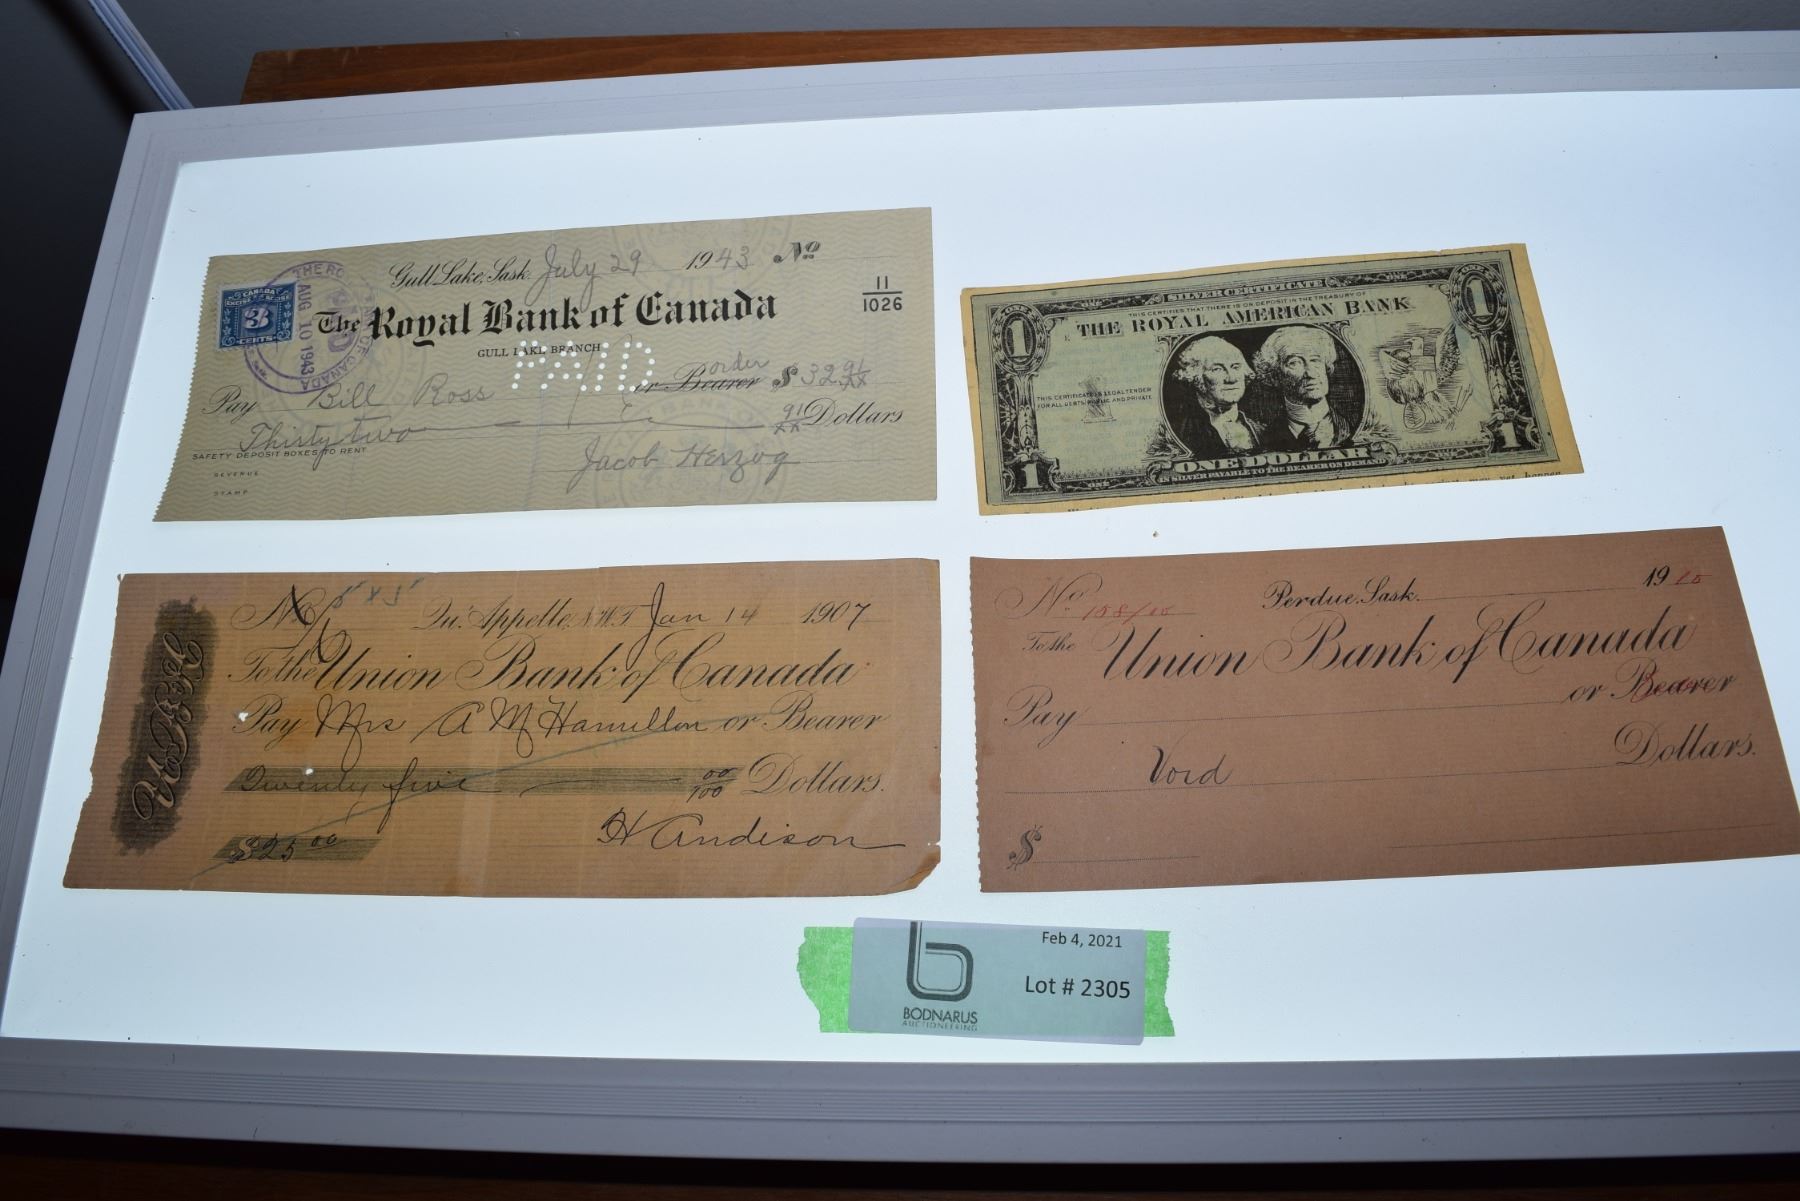 Gull Lake, Sask. July 29 1943 No
11
1026
The Royal Bank of Canada
GULL LAKE BRANCH
CANADA
EXCISE
3
CENTS
AUG 10 1943
PAID
Pay Bill Ross or Bearer order $ 32 91/XX
Thirty two 91/XX Dollars
SAFETY DEPOSIT BOXES TO RENT
Jacob Herzog
REVENUE
STAMP
SILVER CERTIFICATE
THIS CERTIFIES THAT THERE IS ON DEPOSIT IN THE TREASURY OF
THE ROYAL AMERICAN BANK
THIS CERTIFICATE IS LEGAL TENDER
FOR ALL DEBTS PUBLIC AND PRIVATE
1
1
1
1
ONE DOLLAR
IN SILVER PAYABLE TO THE BEARER ON DEMAND
ONE
ONE
No
Qu'Appelle, N.W.T. Jan 14 1907
To the Union Bank of Canada
Pay Mrs A M Hamillon or Bearer
Twenty five 00/100 Dollars.
$25 00
H Andison
No. 158/00
Perdue, Sask. 1910
To the Union Bank of Canada
Pay or Bearer
Void Dollars.
$
Feb 4, 2021
Lot # 2305
BODNARUS
AUCTIONEERING